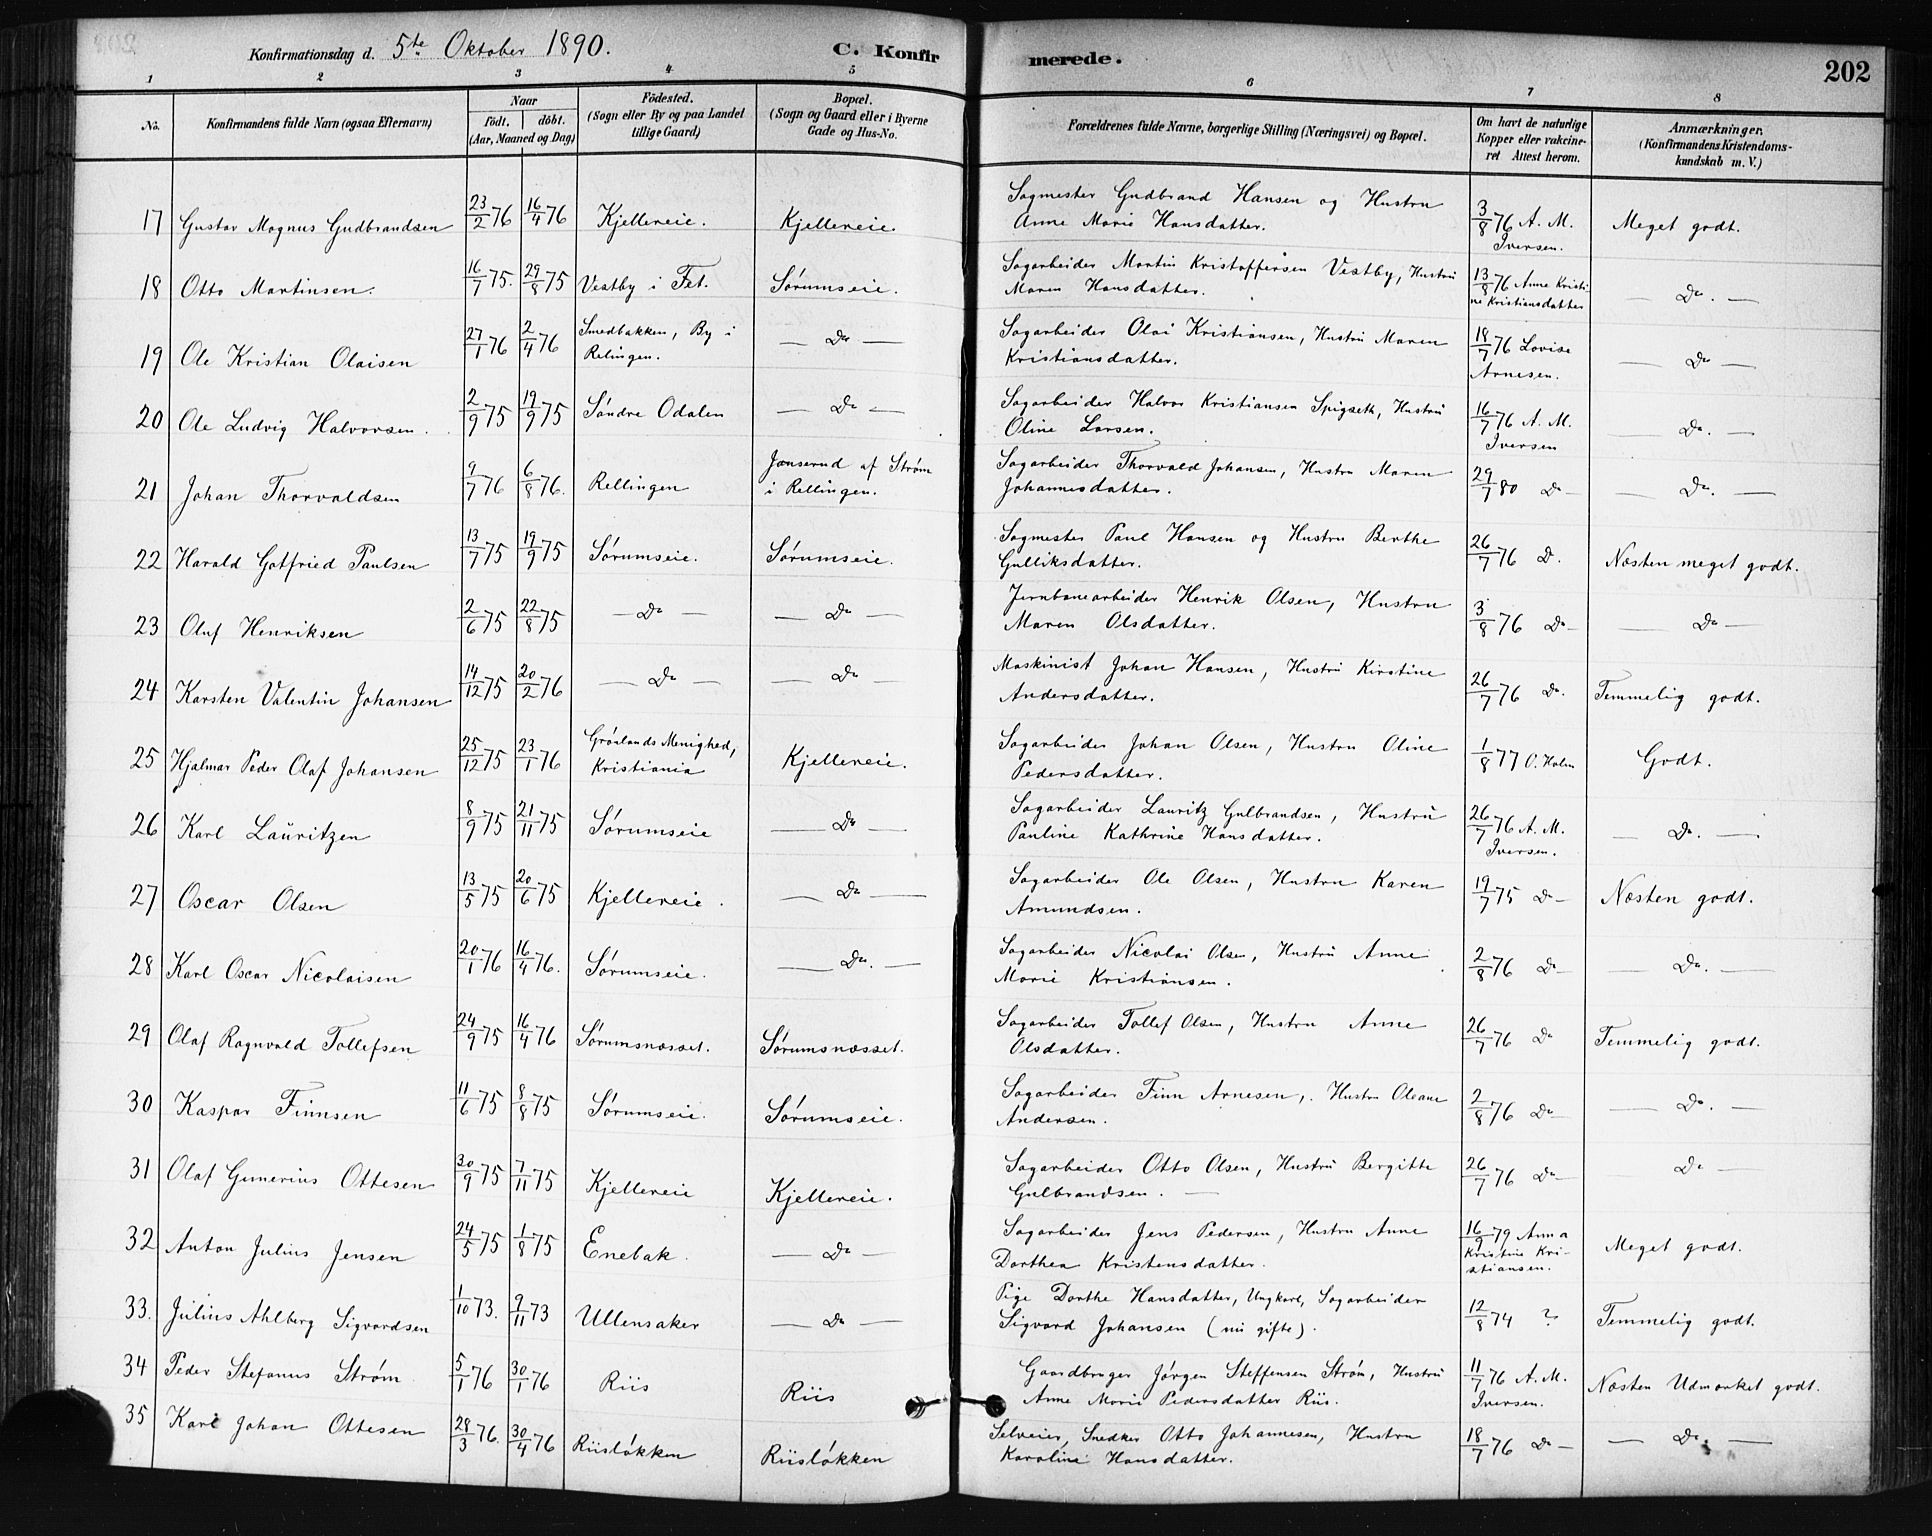 Konfirmationsdag d. 5te Oktober 1890. C. Konfirmerede. 202
1 2 3 4 5 6 7 8
No. Konfirmandens fulde Navn (ogsaa Efternavn) Naar födt. döbt. (Aar, Maaned og Dag) Födested. (Sogn eller By og paa Landet tillige Gaard) Bopæl. (Sogn og Gaard eller i Byerne Gade og Hus-No. Forældrenes fulde Navne, borgerlige Stilling (Næringsvei) og Bopæl. Om havt de naturlige Kopper eller vakcineret Attest herom. Anmærkninger. (Konfirmandens Kristendomskundskab m. V.)
17 Gustav Magnus Gudbrandsen 23/2 76 16/4 76 Kjellereie. Kjellereie. Sagmester Gudbrand Hansen og Hustru Anne Marie Hansdatter. 3/8 76 A. M. Iversen. Meget godt.
18 Otto Martinsen. 16/7 75. 29/8 75 Vestby i Fet. Sørumseie. Sagarbeider Martin Kristoffersen Vestby, Hustru Maren Hansdatter. 13/8 76 Anne Kristine Kristiansdatter — Do. —
19 Ole Kristian Olaisen 27/1 76 2/4 76 Smedbakken, By i Relingen. — Do — Sagarbeider Olai Kristiansen, Hustru Maren Kristiansdatter. 18/7 76 Lovise Arnesen. — Do —
20 Ole Ludvig Halvorsen. 2/9 75 19/9 75 Søndre Odalen — Do — Sagarbeider Halvor Kristiansen Spigseth, Hustru Oline Larsen. 16/7 76 A. M. Iversen — Do. —
21 Johan Thorvaldsen 9/7 76 6/8 76. Rellingen Jonserud af Strøm i Rellingen. Sagarbeider Thorvald Johansen, Hustru Maren Johannesdatter. 29/7 80 Do — — Do. —
22 Harald Gotfried Paulsen 13/7 75 19/9 75 Sørumseie. Sørumseie. Sagmester Paul Hansen og Hustru Berthe Gulliksdatter. 26/7 76 D. Næsten meget godt.
23 Oluf Henriksen 2/6 75 22/8 75 — Do — — Do — Jernbanearbeider Henrik Olsen, Hustru Maren Olsdatter. 3/8 76 Do — — Do —
24 Karsten Valentin Johansen 14/12 75 20/2 76 — Do — — Do — Maskinist Johan Hansen, Hustru Kirstine Andersdatter. 26/7 76 Do. Temmelig godt.
25 Hjalmar Peder Olaf Johansen 25/12 75 23/1 76 Grønlands Menighed, Kristiania Kjellereie. Sagarbeider Johan Olsen, Hustru Oline Pedersdatter. 1/8 77 O. Holm Godt.
26 Karl Lauritzen 8/9 75 21/11 75 Sørumseie — Do — Sagarbeider Lauritz Gulbrandsen, Hustru Pauline Kathrine Hansdatter. 26/7 76 A. M. Iversen. — Do. —
27 Oscar Olsen 13/5 75 20/6 75 Kjellereie. — Do — Sagarbeider Ole Olsen, Hustru Karen Amundsen. 19/7 75 Do — Næsten godt.
28 Karl Oscar Nicolaisen 20/1 76 16/4 76. Sørumseie. — Do. — Sagarbeider Nicolai Olsen, Hustru Anne Marie Kristiansen. 2/8 76 Do — Do. —
29 Olaf Ragnvald Tollefsen 24/9 75 16/4 76 Sørumsnæsset. Sørumsnæsset. Sagarbeider Tollef Olsen, Hustru Anne Olsdatter. 26/7 76 Do Temmelig godt.
30 Kaspar Finnsen 11/6 75 8/8 75 Sørumseie. Sørumseie. Sagarbeider Finn Arnesen, Hustru Oleane Andersen. 2/8 76 Do — — Do. —
31 Olaf Gunerius Ottesen 30/9 75 7/11 75 Kjellereie Kjellereie. Sagarbeider Otto Olsen, Hustru Bergitte Gulbrandsen. — 26/7 76 Do — Do —
32 Anton Julius Jensen 24/5 75 1/8 75 Enebak. — Do — Sagarbeider Jens Pedersen, Hustru Anne Dorthea Kristensdatter. 16/9 79 Anna Kristine Kristiansen. Meget godt.
33. Julius Ahlberg Sigvardsen 1/10 73. 9/11 73 Ullensaker — Do — Pige Dorthe Hansdatter, Ungkarl, Sagarbeider Sigvard Johansen (nu gifte). 12/8 74 ? Temmelig godt.
34 Peder Stefanus Strøm. 5/1 76 30/1 76 Riis Riis Gaardbruger Jørgen Steffensen Strøm, Hustru Anne Marie Pedersdatter Riis. 11/7 76 A. M. Iversen. Næsten Udmærket godt.
35 Karl Johan Ottesen 28/3 76. 30/4 76 Riisløkken Riisløkken Selveier, Snedker Otto Johannesen, Hustru Karoline Hansdatter. 18/7 76 Do — — Do. —